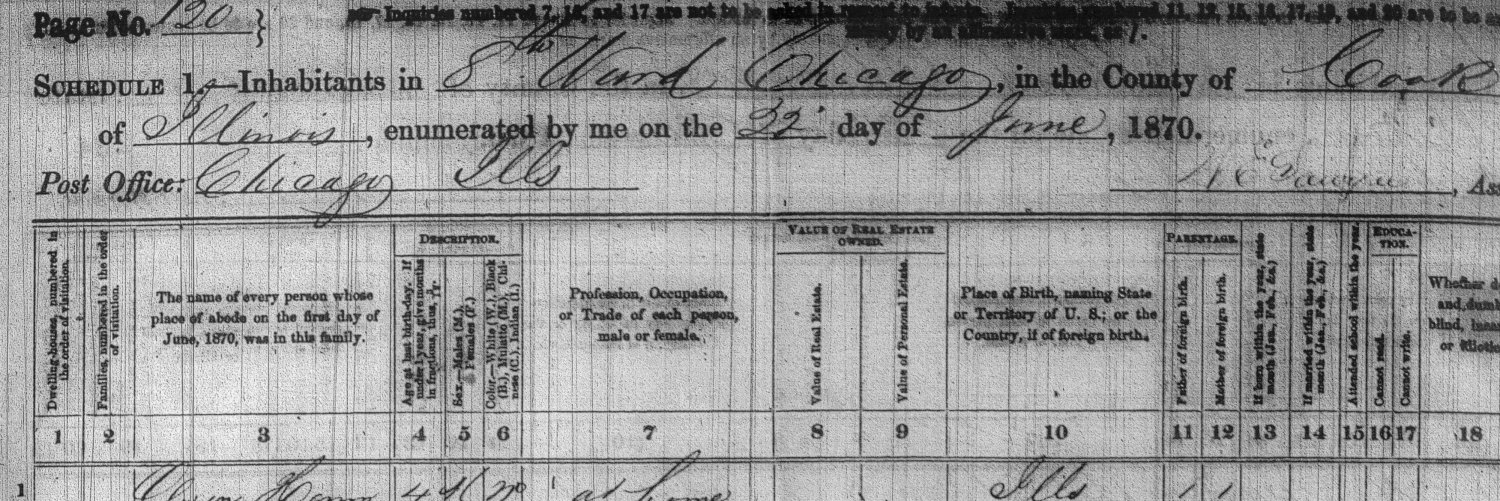 Page No. 120
Inquiries numbered 7, 16, and 17 are not to be asked in respect to infants. Inquiries numbered 11, 12, 15, 16, 17, 19, and 20 are to be
by an affirmative mark, as /.
SCHEDULE 1.—Inhabitants in 8th Ward Chicago, in the County of Cook
of Illinois, enumerated by me on the 22 day of June, 1870.
Post Office: Chicago Ills
Dwelling-houses, numbered in the order of visitation.
Families, numbered in the order of visitation.
The name of every person whose place of abode on the first day of June, 1870, was in this family.
DESCRIPTION.
Age at last birth-day. If under 1 year, give months in fractions, thus,
Sex.—Males (M.), Females (F.)
Color.—White (W.), Black (B.), Mulatto (M.), Chinese (C.), Indian (I.)
Profession, Occupation, or Trade of each person, male or female.
VALUE OF REAL ESTATE OWNED.
Value of Real Estate.
Value of Personal Estate.
Place of Birth, naming State or Territory of U. S.; or the Country, if of foreign birth.
PARENTAGE.
Father of foreign birth.
Mother of foreign birth.
If born within the year, state month (Jan., Feb., &c.)
If married within the year, state month (Jan., Feb., &c.)
Attended school within the year.
EDUCATION.
Cannot read.
Cannot write.
Whether
and dumb
blind,
or
1 2 3 4 5 6 7 8 9 10 11 12 13 14 15 16 17 18
1 4 at home Ills / /